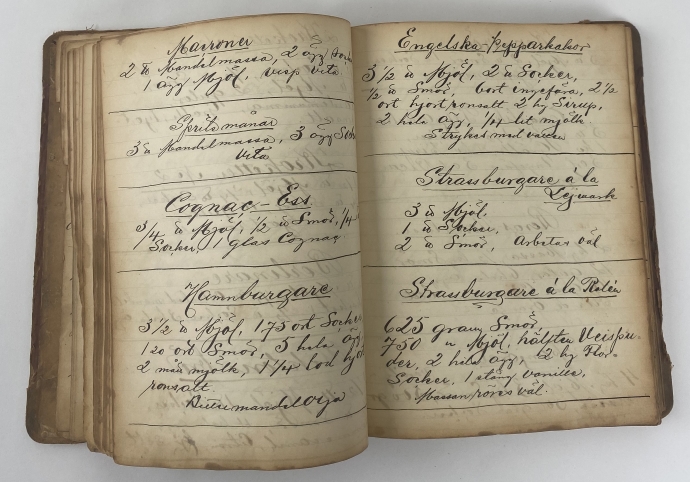 Mairones
2 ℔ Mandelmassa, 2 ägg
1 ägg Mjöl, visp vita
Spritsmånar
3 ℔ Mandelmassa, 3 ägg
Vita
Cognac-Ess
3/4 ℔ Mjöl, 1/2 ℔ Smör, 1/4
Socker, 1 glas Cognac
Hamnburgare
3 1/2 ℔ Mjöl, 175 ort Socker
120 ort Smör, 5 hela ägg
2 mjölk, 1 1/4 lod
ronsalt
Bittermandel olja
Engelska-Pepparkakor
3 1/2 ℔ Mjöl, 2 ℔ Socker,
1/2 ℔ Smör, ort ingefära, 2 1/2
ort hjortronsalt 2 hg Sirup,
2 hela ägg, 1/4 lit mjölk
Strykas med vatten
Strassburgare á la
3 ℔ Mjöl,
1 ℔ Socker,
2 ℔ Smör, Arbetas väl
Strassburgare á la
625 gram Smör,
750 ℔ Mjöl, hälften Veispu-
der, 2 hela ägg, 2 hg Flor-
Socker, 1 stång vanille,
Massan röres väl.